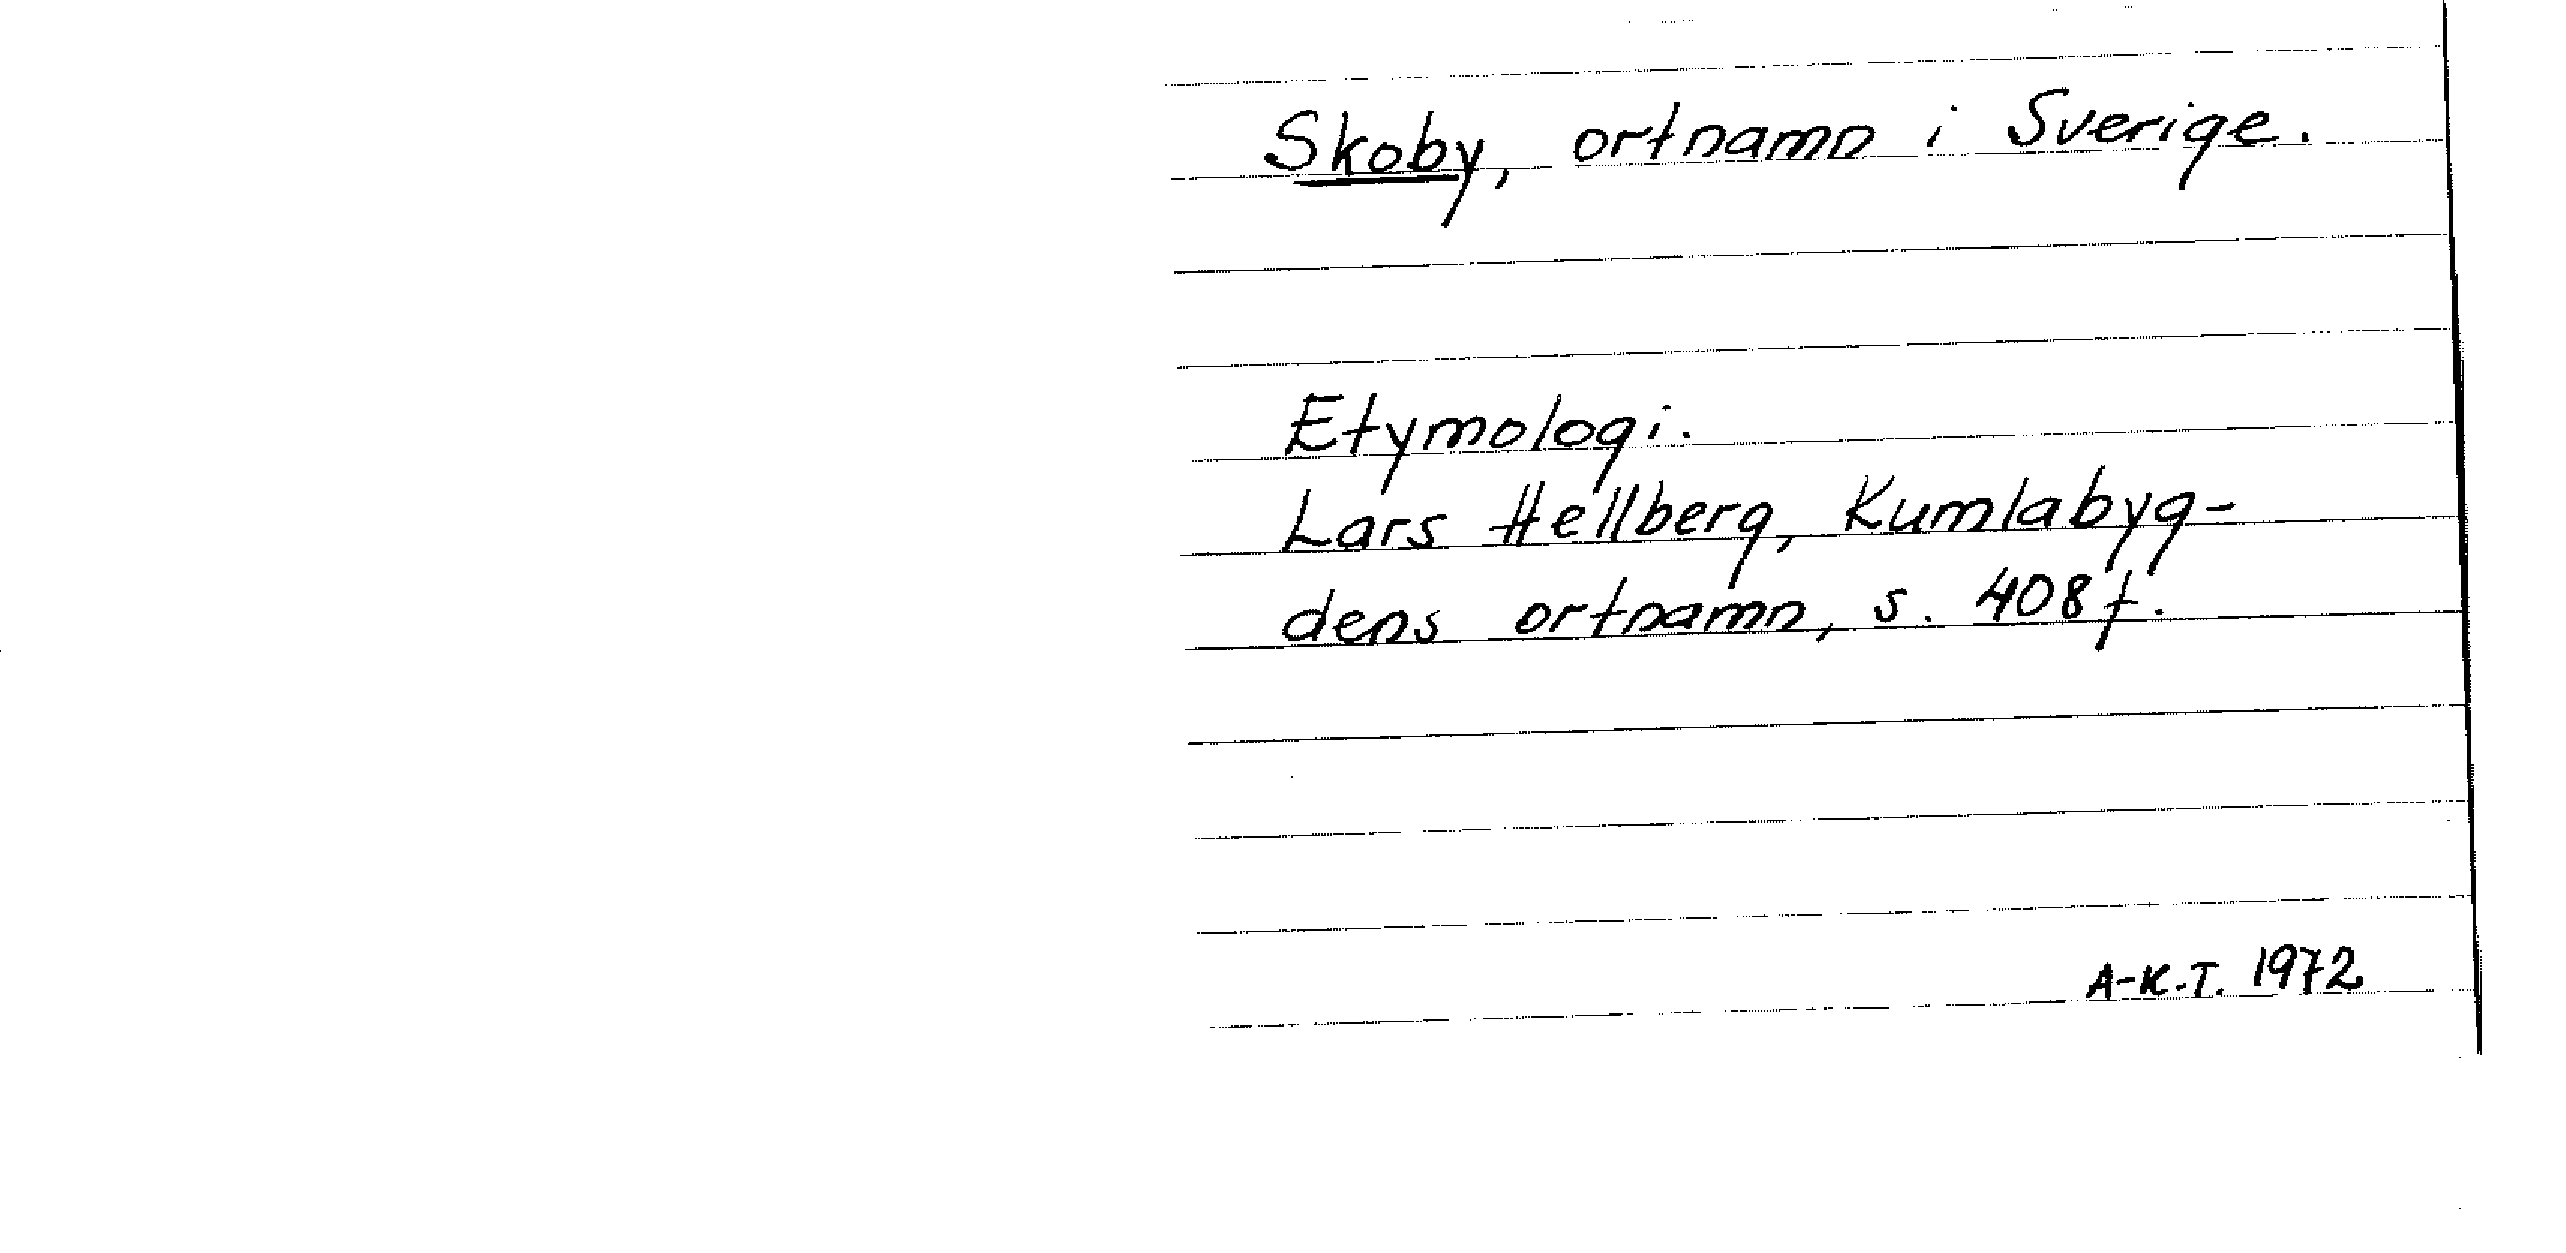 Skoby, ortnamn i Sverige.
Etymologi.
Lars Hellberg, Kumlabyg-
dens ortnamn, s. 408 f.
A-K.T. 1972